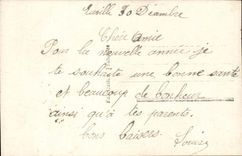 30 Décembre
Chère Amie
Pour la nouvelle année je
te souhaite une bonne santé
et beaucoup de bonheur
ainsi qu'à tes parents.
bons baisers